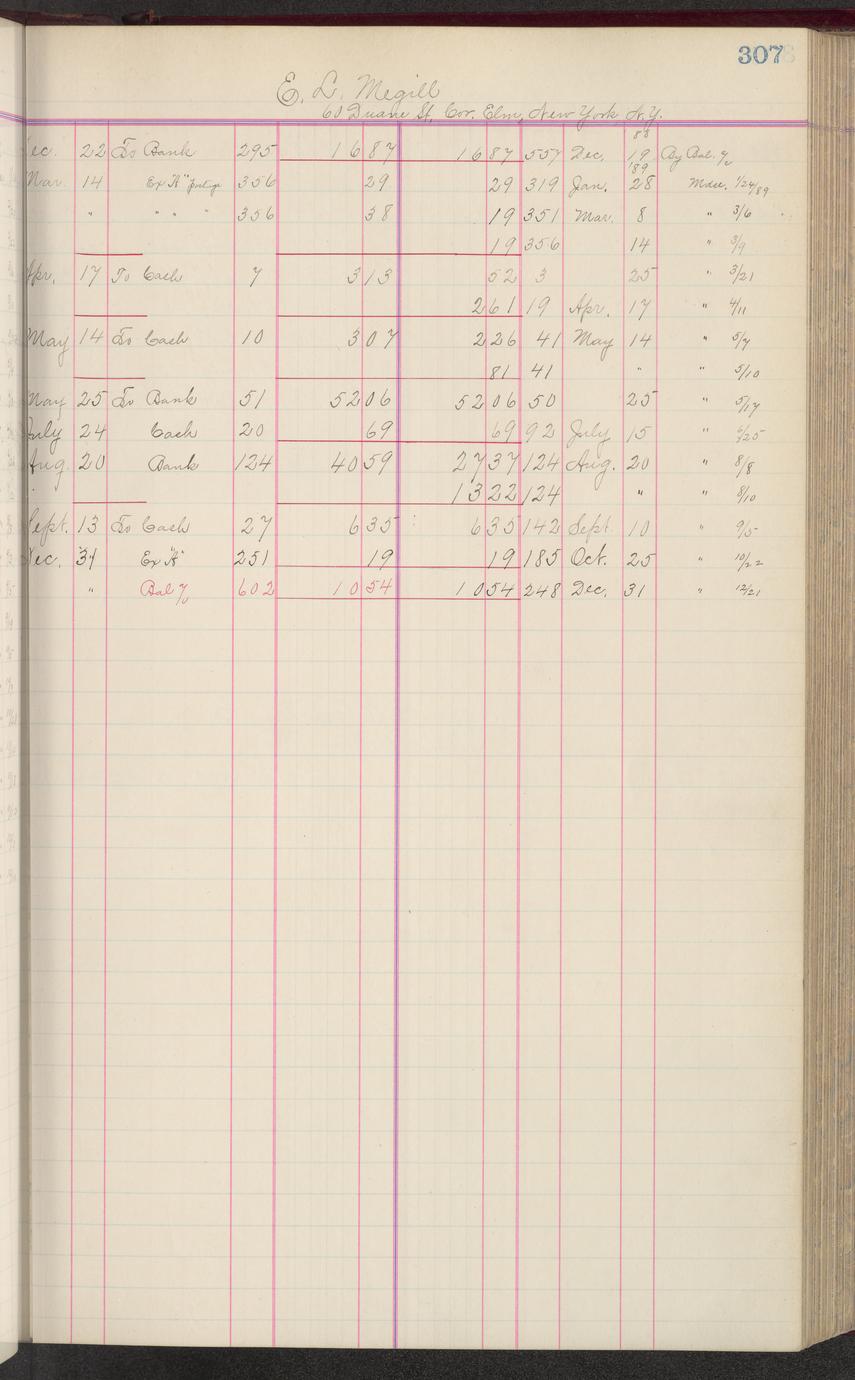 307
E. L. Megill
60 Duane St, Cor. Elm, New York N.Y.
88
ec. 22 To Bank 295 16 87 16 87 557 Dec. 19 By Bal. %
'89
Mar. 14 Ex "A" 356 29 29 319 Jan. 28 Mdse. 1/24/89
" " " " 356 38 19 351 Mar. 8 " 3/6
19 356 14 " 3/9
Apr. 17 To Cash 7 3 13 52 3 25 " 3/21
2 61 19 Apr. 17 " 4/11
May 14 To Cash 10 3 07 2 26 41 May 14 " 5/7
81 41 " " 5/10
May 25 To Bank 51 52 06 52 06 50 25 " 5/17
July 24 Cash 20 69 69 92 July 15 " 6/25
Aug. 20 Bank 124 40 59 27 37 124 Aug. 20 " 8/8
13 22 124 " " 8/10
Sept. 13 To Cash 27 6 35 6 35 142 Sept. 10 " 9/5
Dec. 31 Ex "A" 251 19 19 185 Oct. 25 " 10/22
" Bal % 602 10 54 10 54 248 Dec. 31 " 12/21